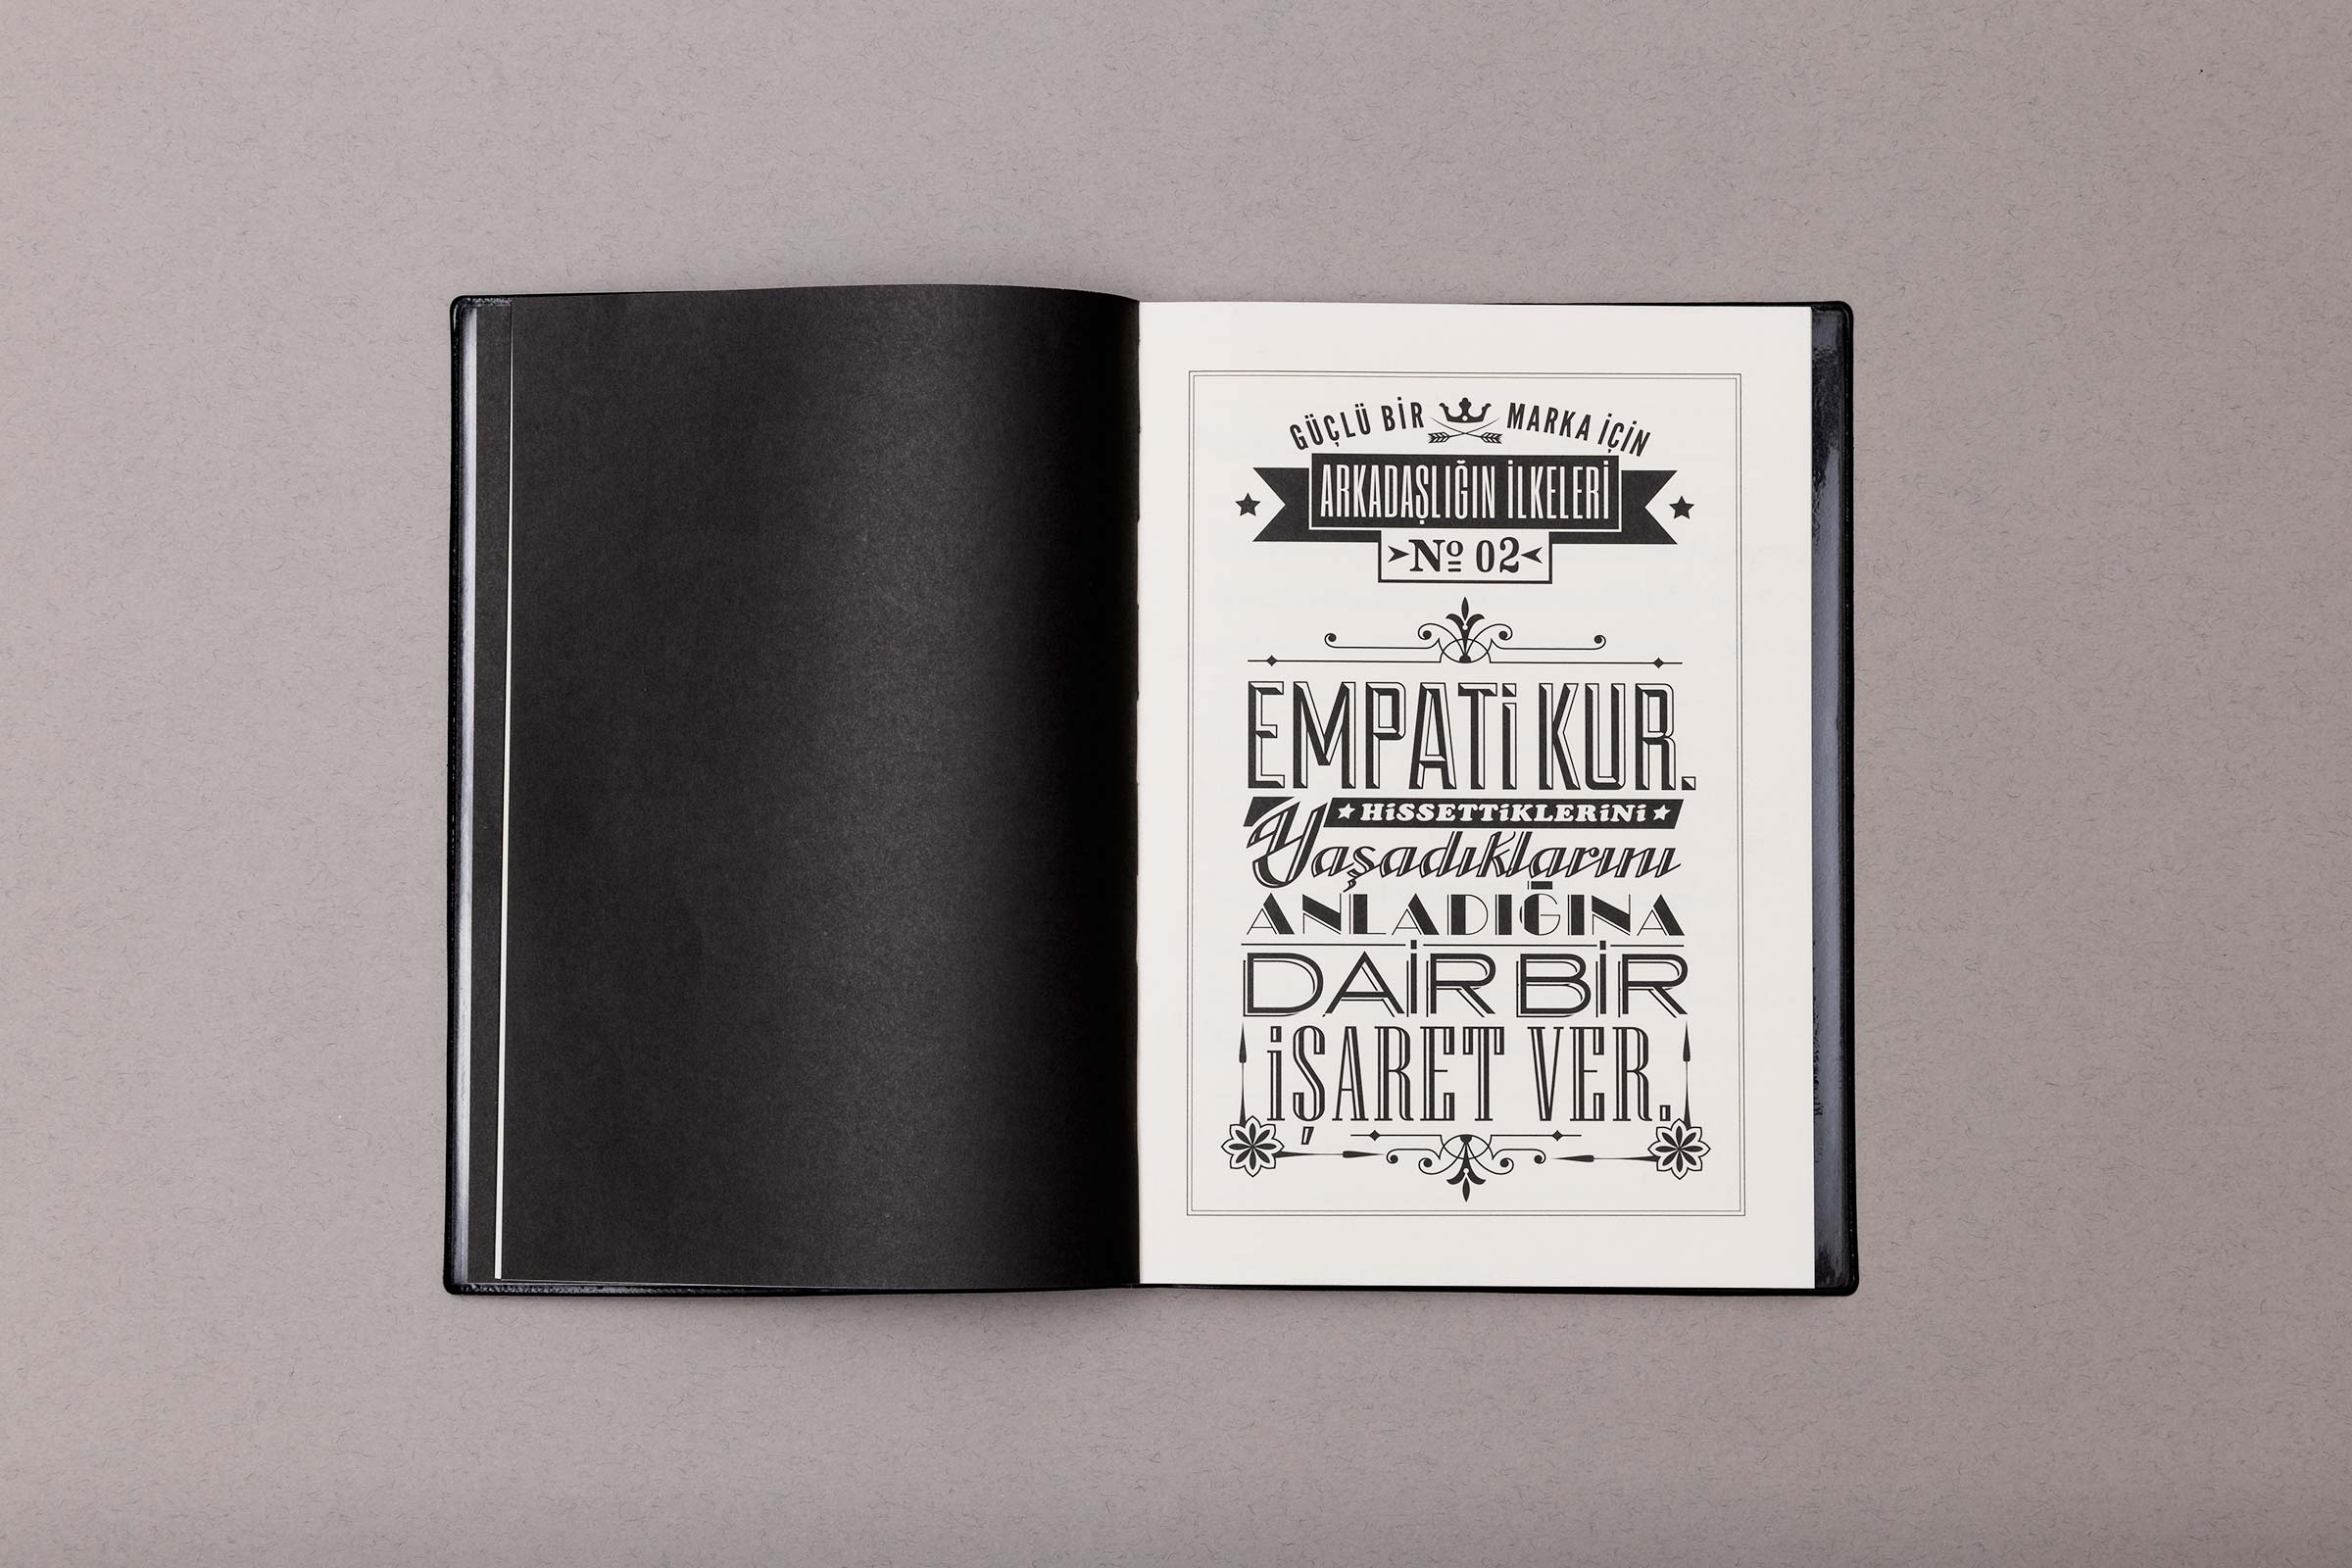 GÜÇLÜ BİR MARKA İÇİN
ARKADAŞLIĞIN İLKELERİ
Nº 02
EMPATİ KUR.
HİSSETTİKLERİNİ
Yaşadıklarını
ANLADIĞINA
DAİR BİR
İŞARET VER.